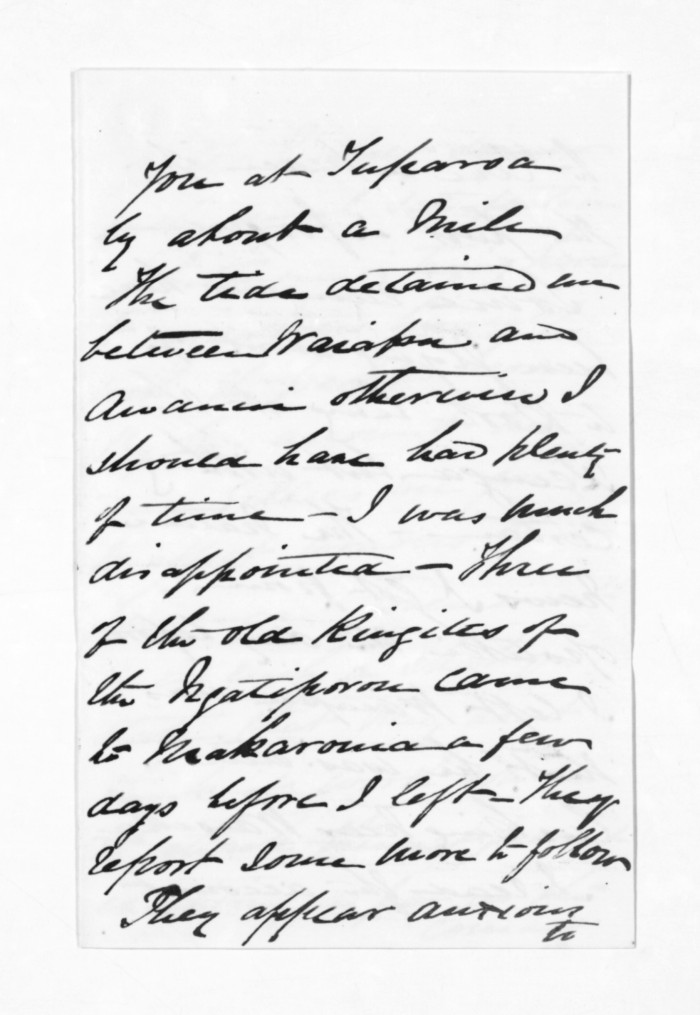 you at Tuparoa
by about a Mile
The tide detained me
between Waiapu and
Awanui otherwise I
should have had plenty
of time - I was much
disappointed - Three
of the old Kingites of
the Ngatiporou came
to Makaronia a few
days before I left - They
report some more to follow
They appear anxious
to